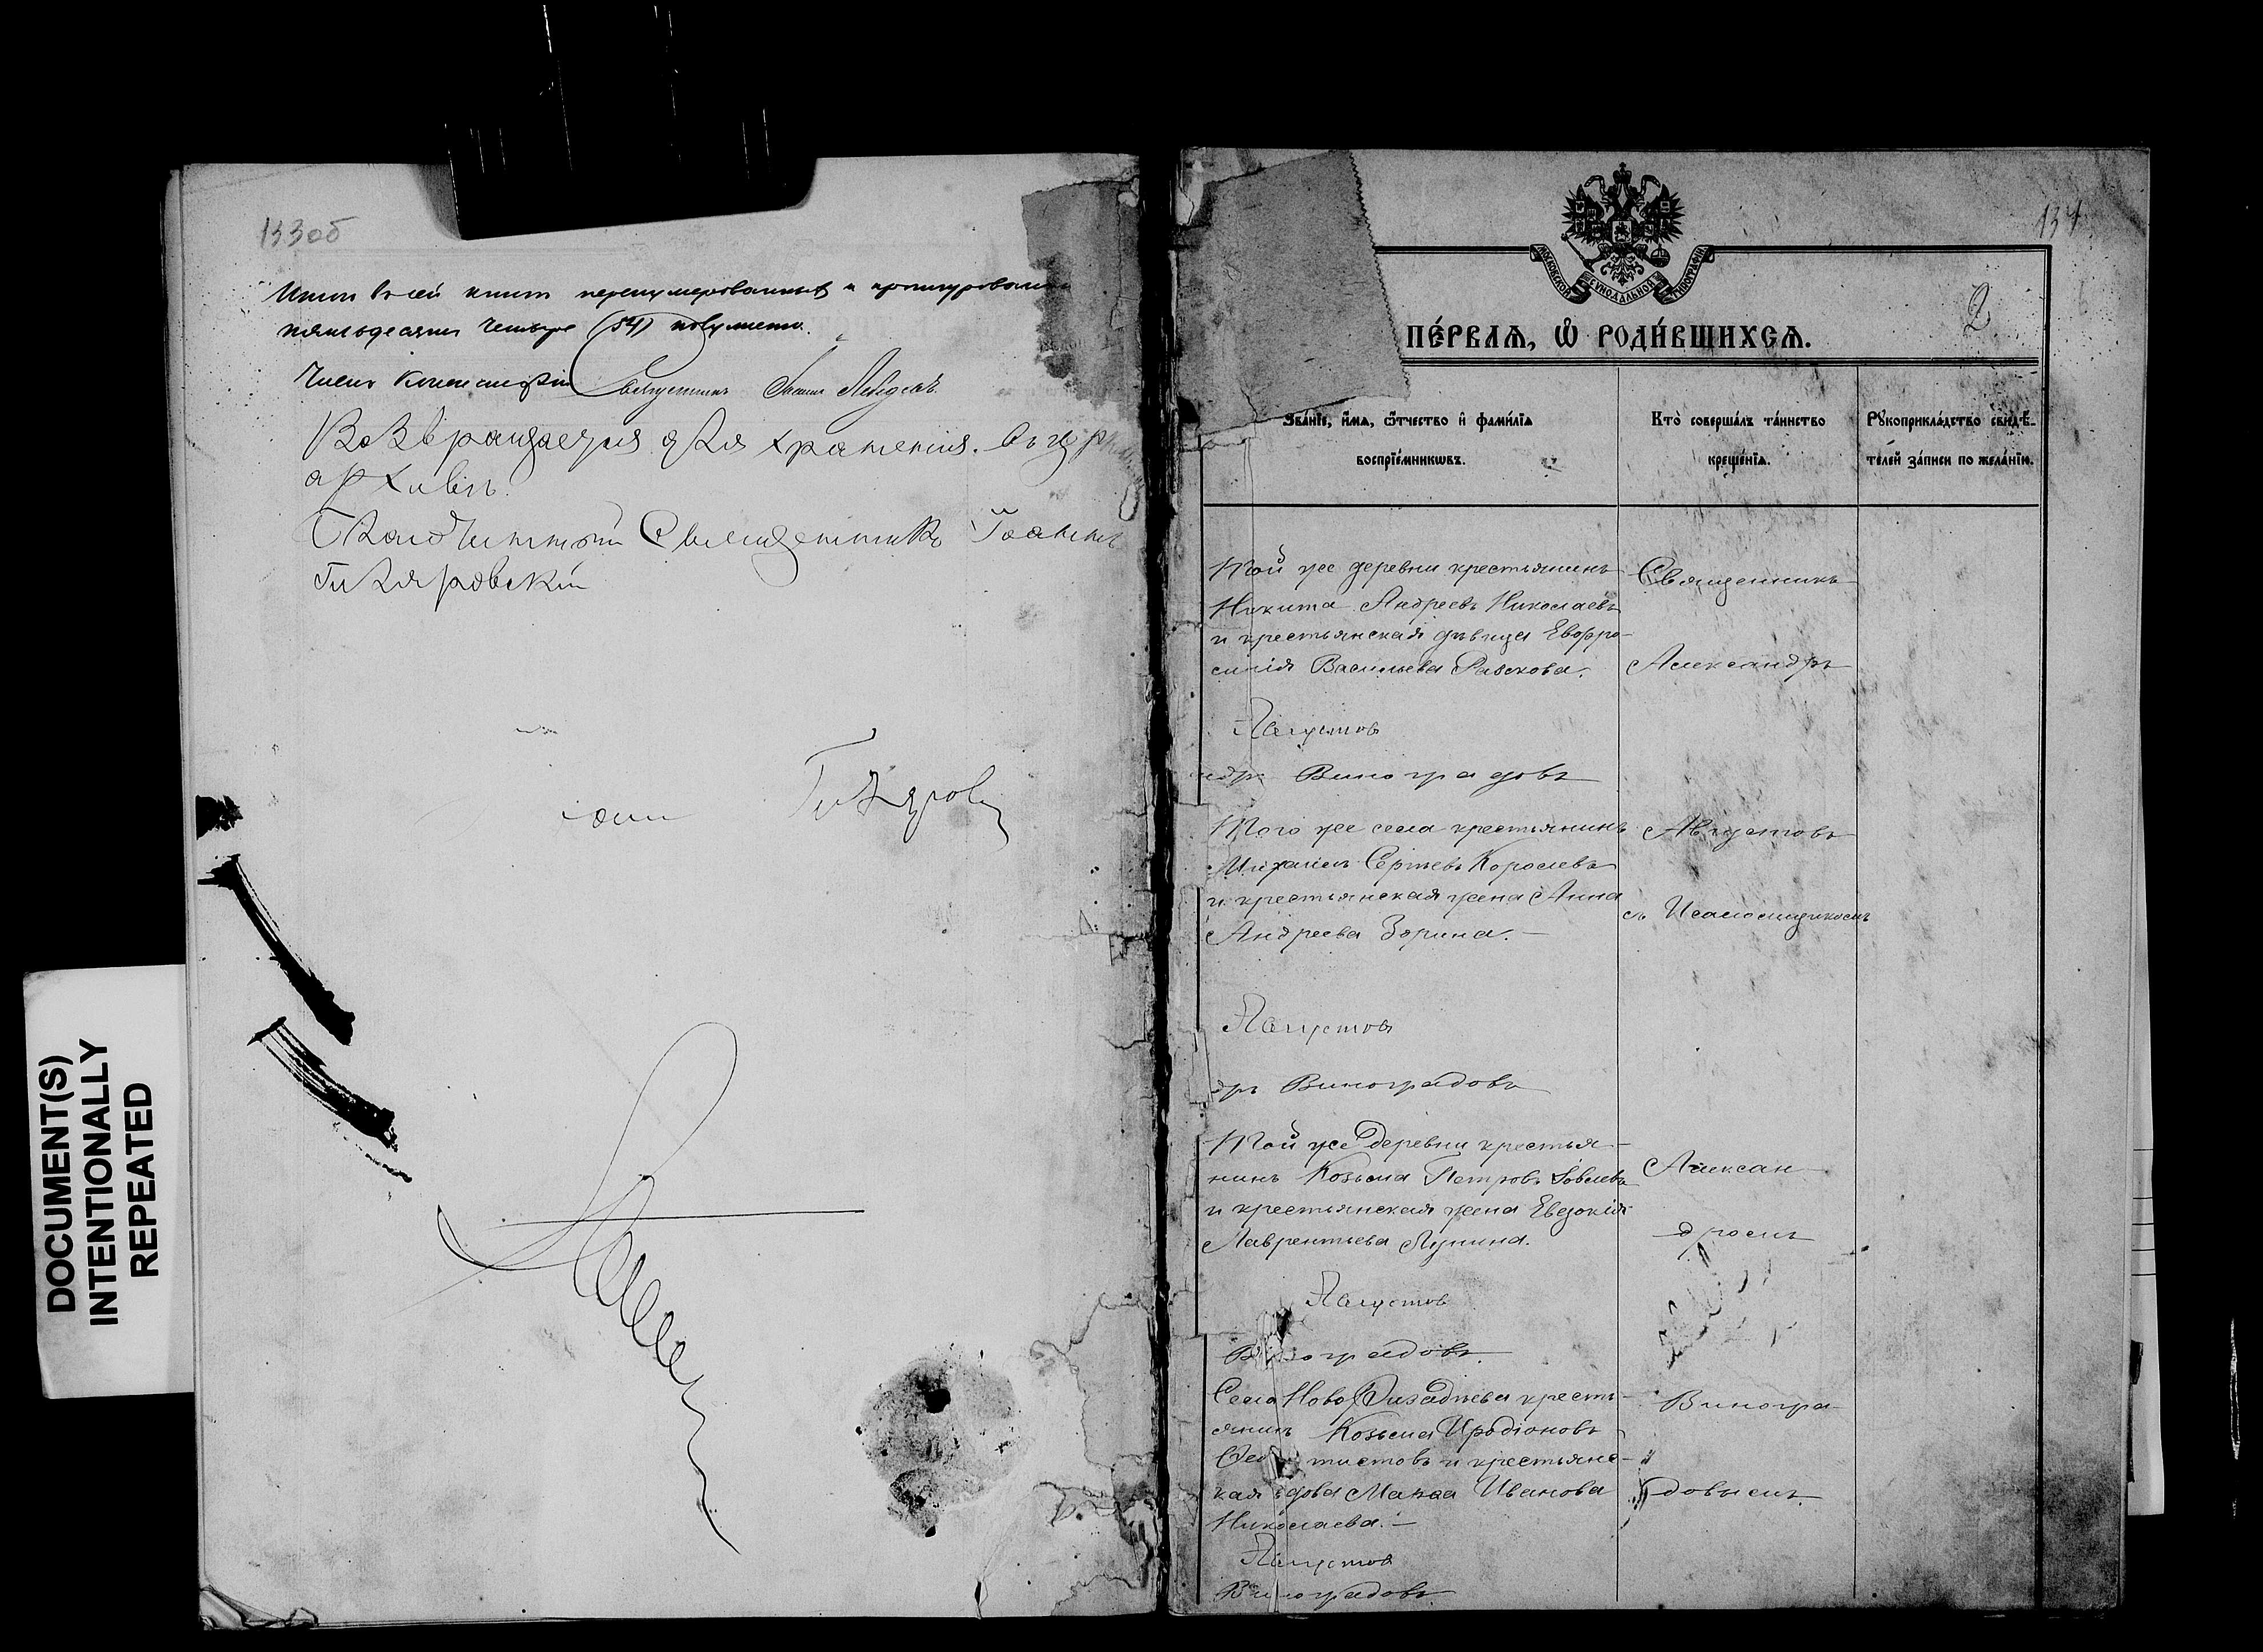 133об
Итого в сей книге перенумерованныхъ и прошнурованныхъ
пятьдесятъ четыре (54) полулиста.
Членъ Консисторіи Священникъ Іоаннъ Лебедевъ
Возвращается для храненія въ церк
архивѣ.
Благочинный Священникъ Іоаннъ
Гиляровскій
Гиляров
DOCUMENT(S)
INTENTIONALLY
REPEATED
134
МОСКОВСКОЙ СѴНОДАЛЬНОЙ ТИПОГРАФІИ
2
ПЕ́РВАѦ, Ѡ҆ РОДИ́ВШИХСѦ.
Зва́нїе, и҆́мѧ, ѻ҆́тчество и҆ фами́лїа
воспрїе́мникѡвъ.
Кто̀ соверша́лъ та́инство
креще́нїѧ.
Рꙋкоприкла́дство свидѣ́-
телей за́писи по жела́нїю.
Той же деревни крестьянинъ
Никита Андреевъ Николаевъ
и крестьянская дѣвица Евфро-
синія Васильева Раскова.
Священникъ
Александръ
Августов
ндръ Виноградовъ
Того же села крестьянинъ
Михаилъ Сергѣевъ Королевъ
и крестьянская жена Анна
Андреева Зорина.
Августовъ
съ Псаломщикомъ
Августов
дръ Виноградовъ
Той же деревни крестья-
нинъ Козьма Петровъ
и крестьянская жена Евдокія
Лаврентьева Лунина.
Алексан-
дромъ
Августов
Виноградовъ.
Села Ново кресть-
янинъ Козьма Иродіоновъ
и крестьянс-
кая вдова Иванова
Николаева.
Виногра-
довымъ.
Августов
Виноградовъ